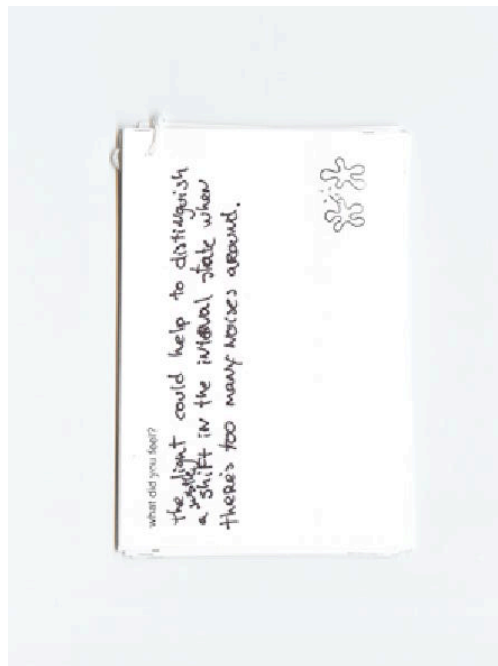 what did you feel?
the light could help to distinguish
a subtle shift in the internal state when
there's too many noises around.